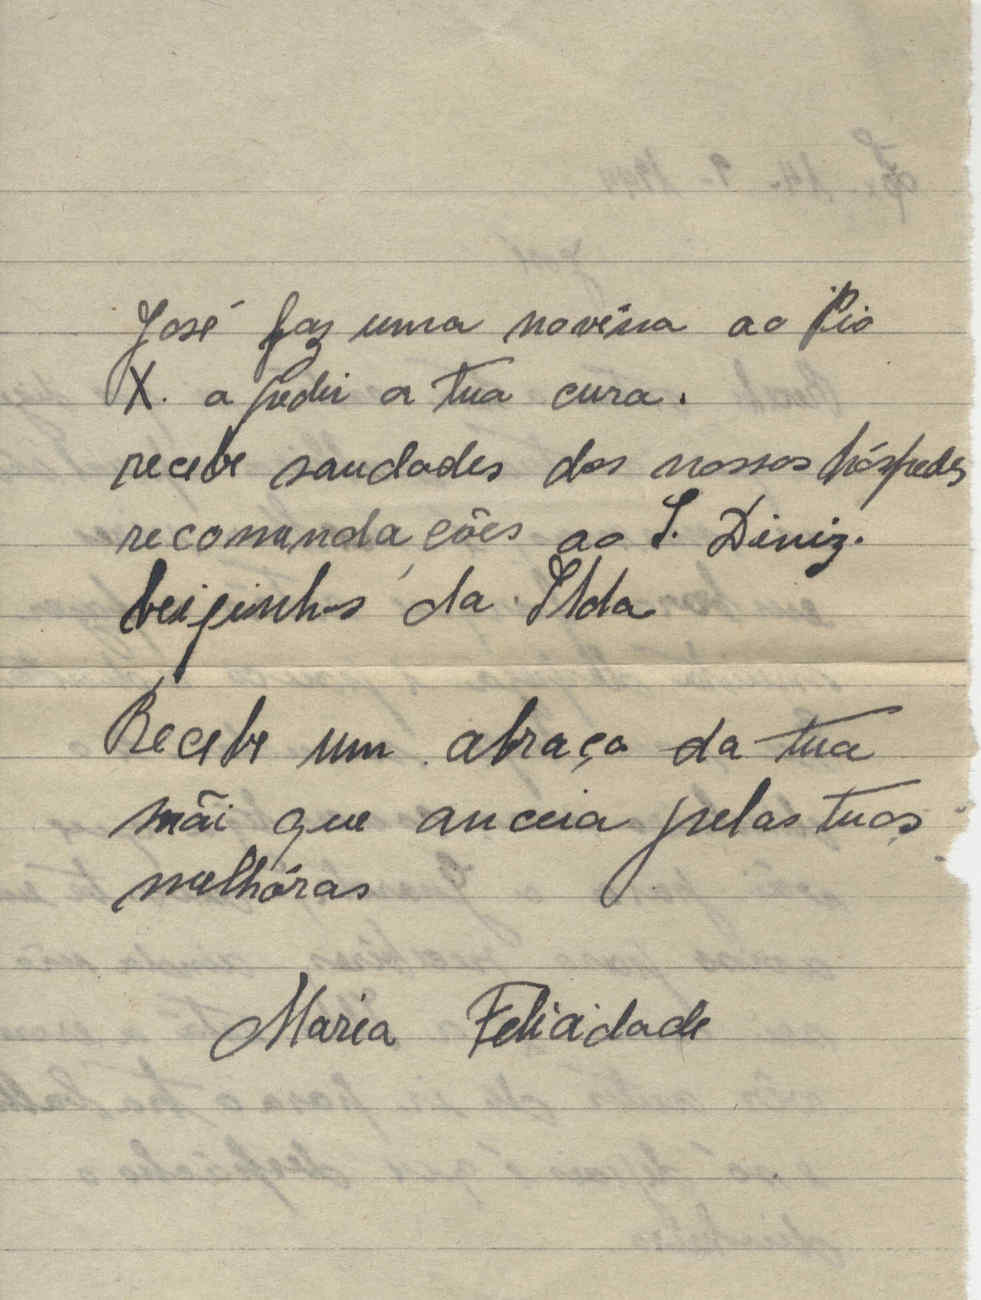 José faz uma novêna ao Pio
X. a pedir a tua cura.
recebe saudades dos nossos hóspedes
recomenda ções ao S. Diniz.
beiginhos da Ilda
Recebe um abraço da tua
mãi que anceia pelas tuas
melhóras
Maria Felicidade